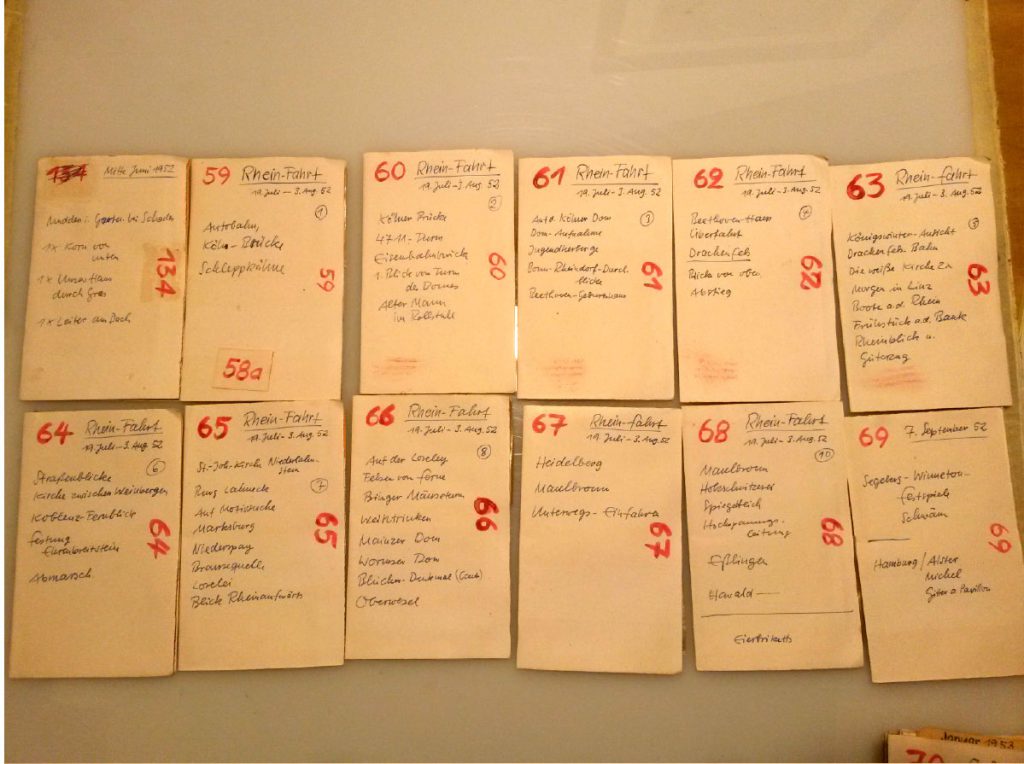 134 Mitte Juni 1952
1 x Korn von
unten
1 x Unser Haus
durch Gras
1 x Leiter am Dach
134
59 Rhein-Fahrt
19. Juli – 3. Aug. 52
1
Autobahn,
Köln-Brücke
Schleppkähne
59
58a
60 Rhein-Fahrt
19. Juli - 3. Aug. 52
2
Kölner Brücke
4711-Turm
Eisenbahnbrücke
1. Blick vom Turm
des Domes
Alter Mann
im Rollstuhl
60
61 Rhein-Fahrt
19. Juli - 3. Aug. 52
3
Auf d. Kölner Dom
Dom-Aufnahme
Jugendherberge
Bonn-Rheindorf-Durch
blicke
Beethoven-Geburtshaus
61
62 Rhein-Fahrt
19. Juli - 3. Aug. 52
Beethoven-Haus
Überfahrt
Drachenfels
Blick von oben
Abstieg
62
63 Rhein-Fahrt
19. Juli - 3. Aug. 52
Königswinter-Ansicht
Drachenfels-Bahn
Die weiße Kirche Zu
Morgen in Linz
Boote a.d. Rhein
Frühstück a.d. Bank
Rheinblick u.
Güterzug
63
64 Rhein-Fahrt
19. Juli - 3. Aug. 52
6
Straßenblicke
Kirche zwischen Weinbergen
Koblenz-Fernblick
Festung
Ehrenbreitstein
Abmarsch
64
65 Rhein-Fahrt
19. Juli - 3. Aug. 52
St.-Joh.-Kirche Niederlahn-
stein
Burg Lahneck 7
Auf Motivsuche
Marksburg
Niederspay
Brausequelle
Lorelei
Blick Rheinaufwärts
65
66 Rhein-Fahrt
19. Juli - 3. Aug. 52
8
Auf der Loreley
Felsen von ferne
Binger Mäuseturm
Mainzer Dom
Wormser Dom
Blücher-Denkmal (Caub)
Oberwesel
66
67 Rhein-Fahrt
19. Juli - 3. Aug. 52
Heidelberg
Maulbronn
Unterwegs-Einfahren
67
68 Rhein-Fahrt
19. Juli - 3. Aug. 52
10
Maulbronn
Holzschnitzerei
Spiegelteich
Hochspannungs-
leitung
Eßlingen
Harald
68
69 7. September 52
Segeberg-Winnetou-
festspiele
Schwäne
Hamburg / Alster
Michel
Gitter a Pavillon
69
Januar 1953
70